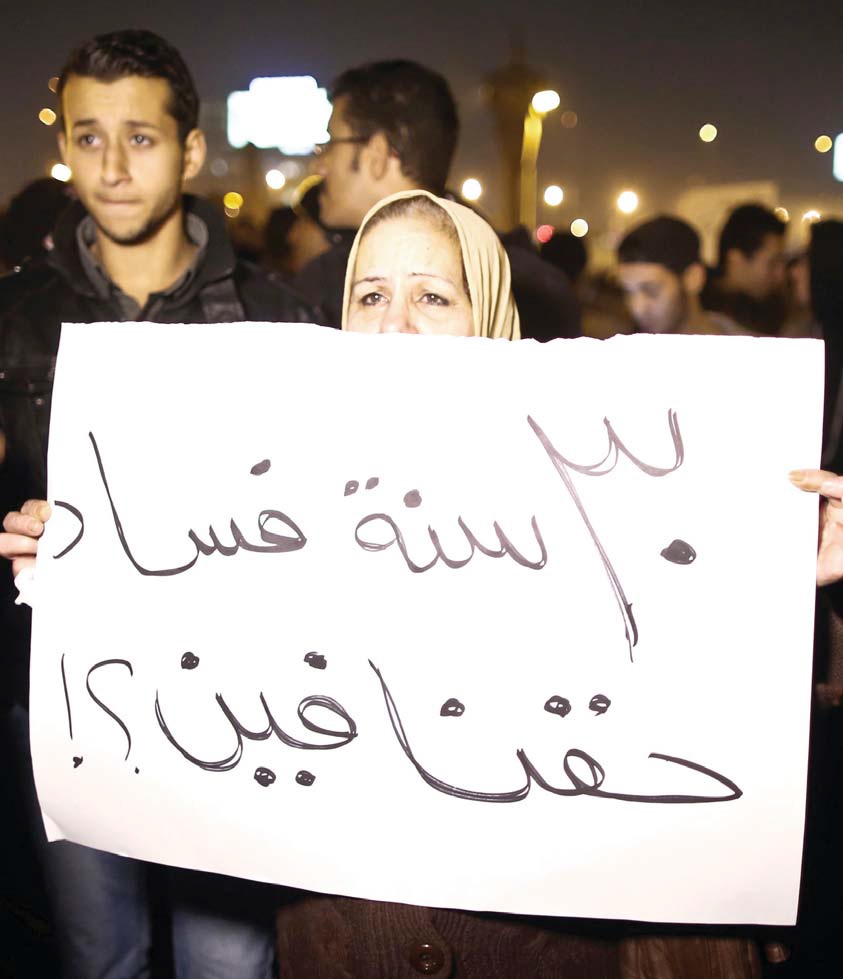 ٣٠ سنة فساد
حقنا فين؟!